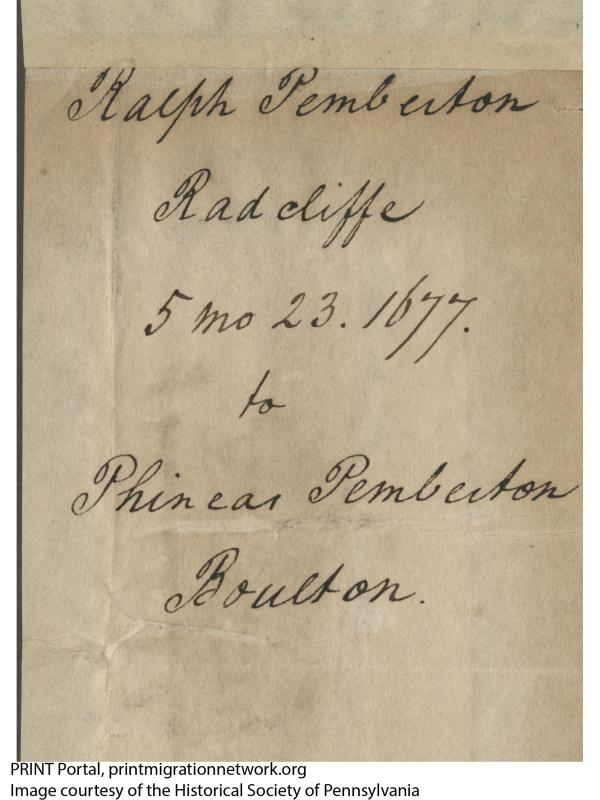 Ralph Pemberton
Radcliffe
5 mo 23. 1677.
to
Phineas Pemberton
Boulton.
PRINT Portal, printmigrationnetwork.org
Image courtesy of the Historical Society of Pennsylvania